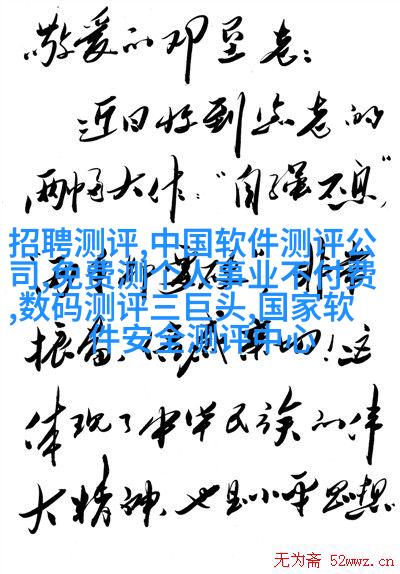 敬爱的邓垦老：
近日收到您老的
两幅大作：“自强不息”
招聘测评,中国软件测评公
司,免费测个人事业不付费
,数码测评三巨头,国家软
件安全测评中心
非常
振奋，！这
体现了中华民族的伟
大精神，也是小平思想
无为斋 52wwz.cn